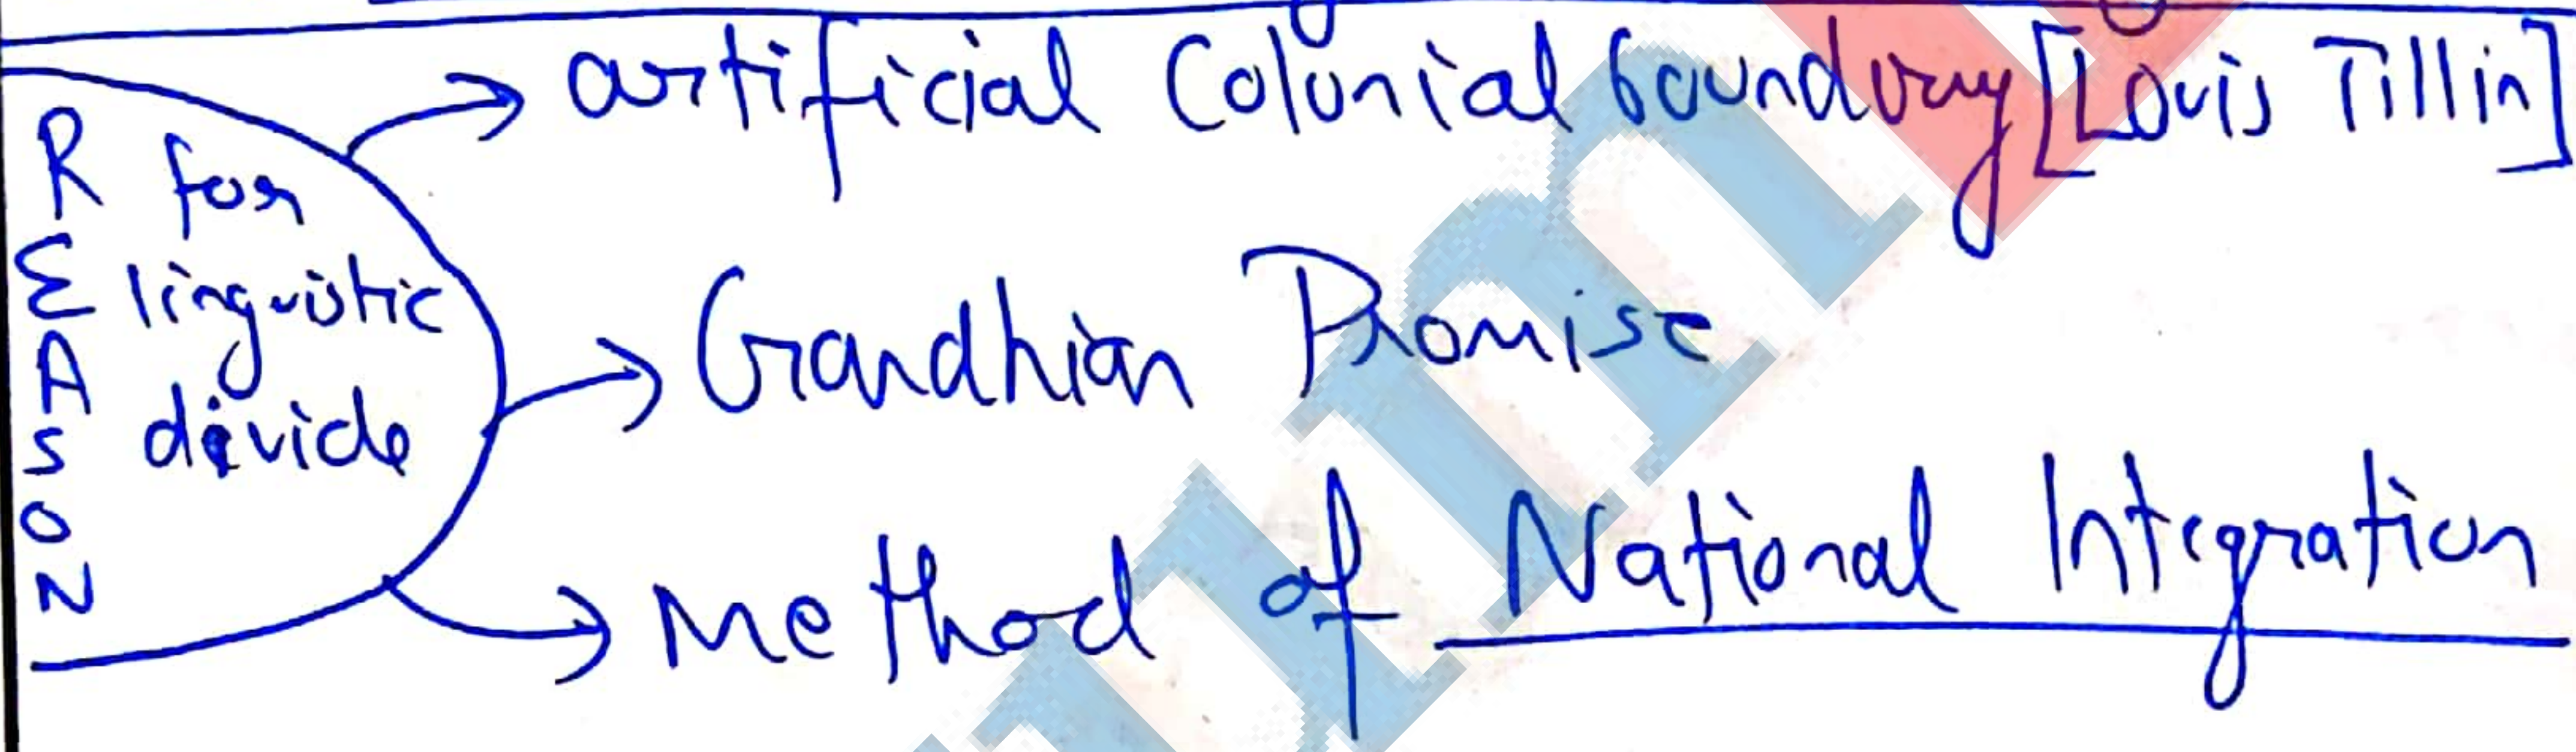 REASON for linguistic divide
→ artificial Colonial boundary [Louis Tillin]
→ Gandhian Promise
→ Method of National Integration